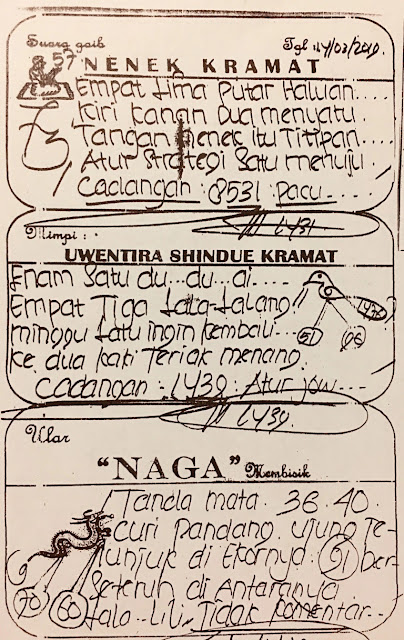 Suara gaib
Tgl 14/03/2010.
57 NENEK KRAMAT
Empat lima putar Haluan....
Kiri kanan Dua menyatu
Tangan nenek itu Titipan....
Atur strategi Satu menuju..
Cadangan : 8531 Pacu....
1431
Mimpi :
UWENTIRA SHINDUE KRAMAT
Enam Satu du...du...di.....
Empat Tiga Lala-Lalang
minggu Satu ingin kembali...
51
ke dua kali Teriak menang
Cadangan : 1439 : Atur
1439.
Ular
"NAGA" Membisik
Tanda mata. 36.40.
Curi pandang. ujung Te-
lunjuk di Ekornya (51) Ber-
Seteruh di Antaranya
70 60 Lala...Lili.. Tidak komentar...